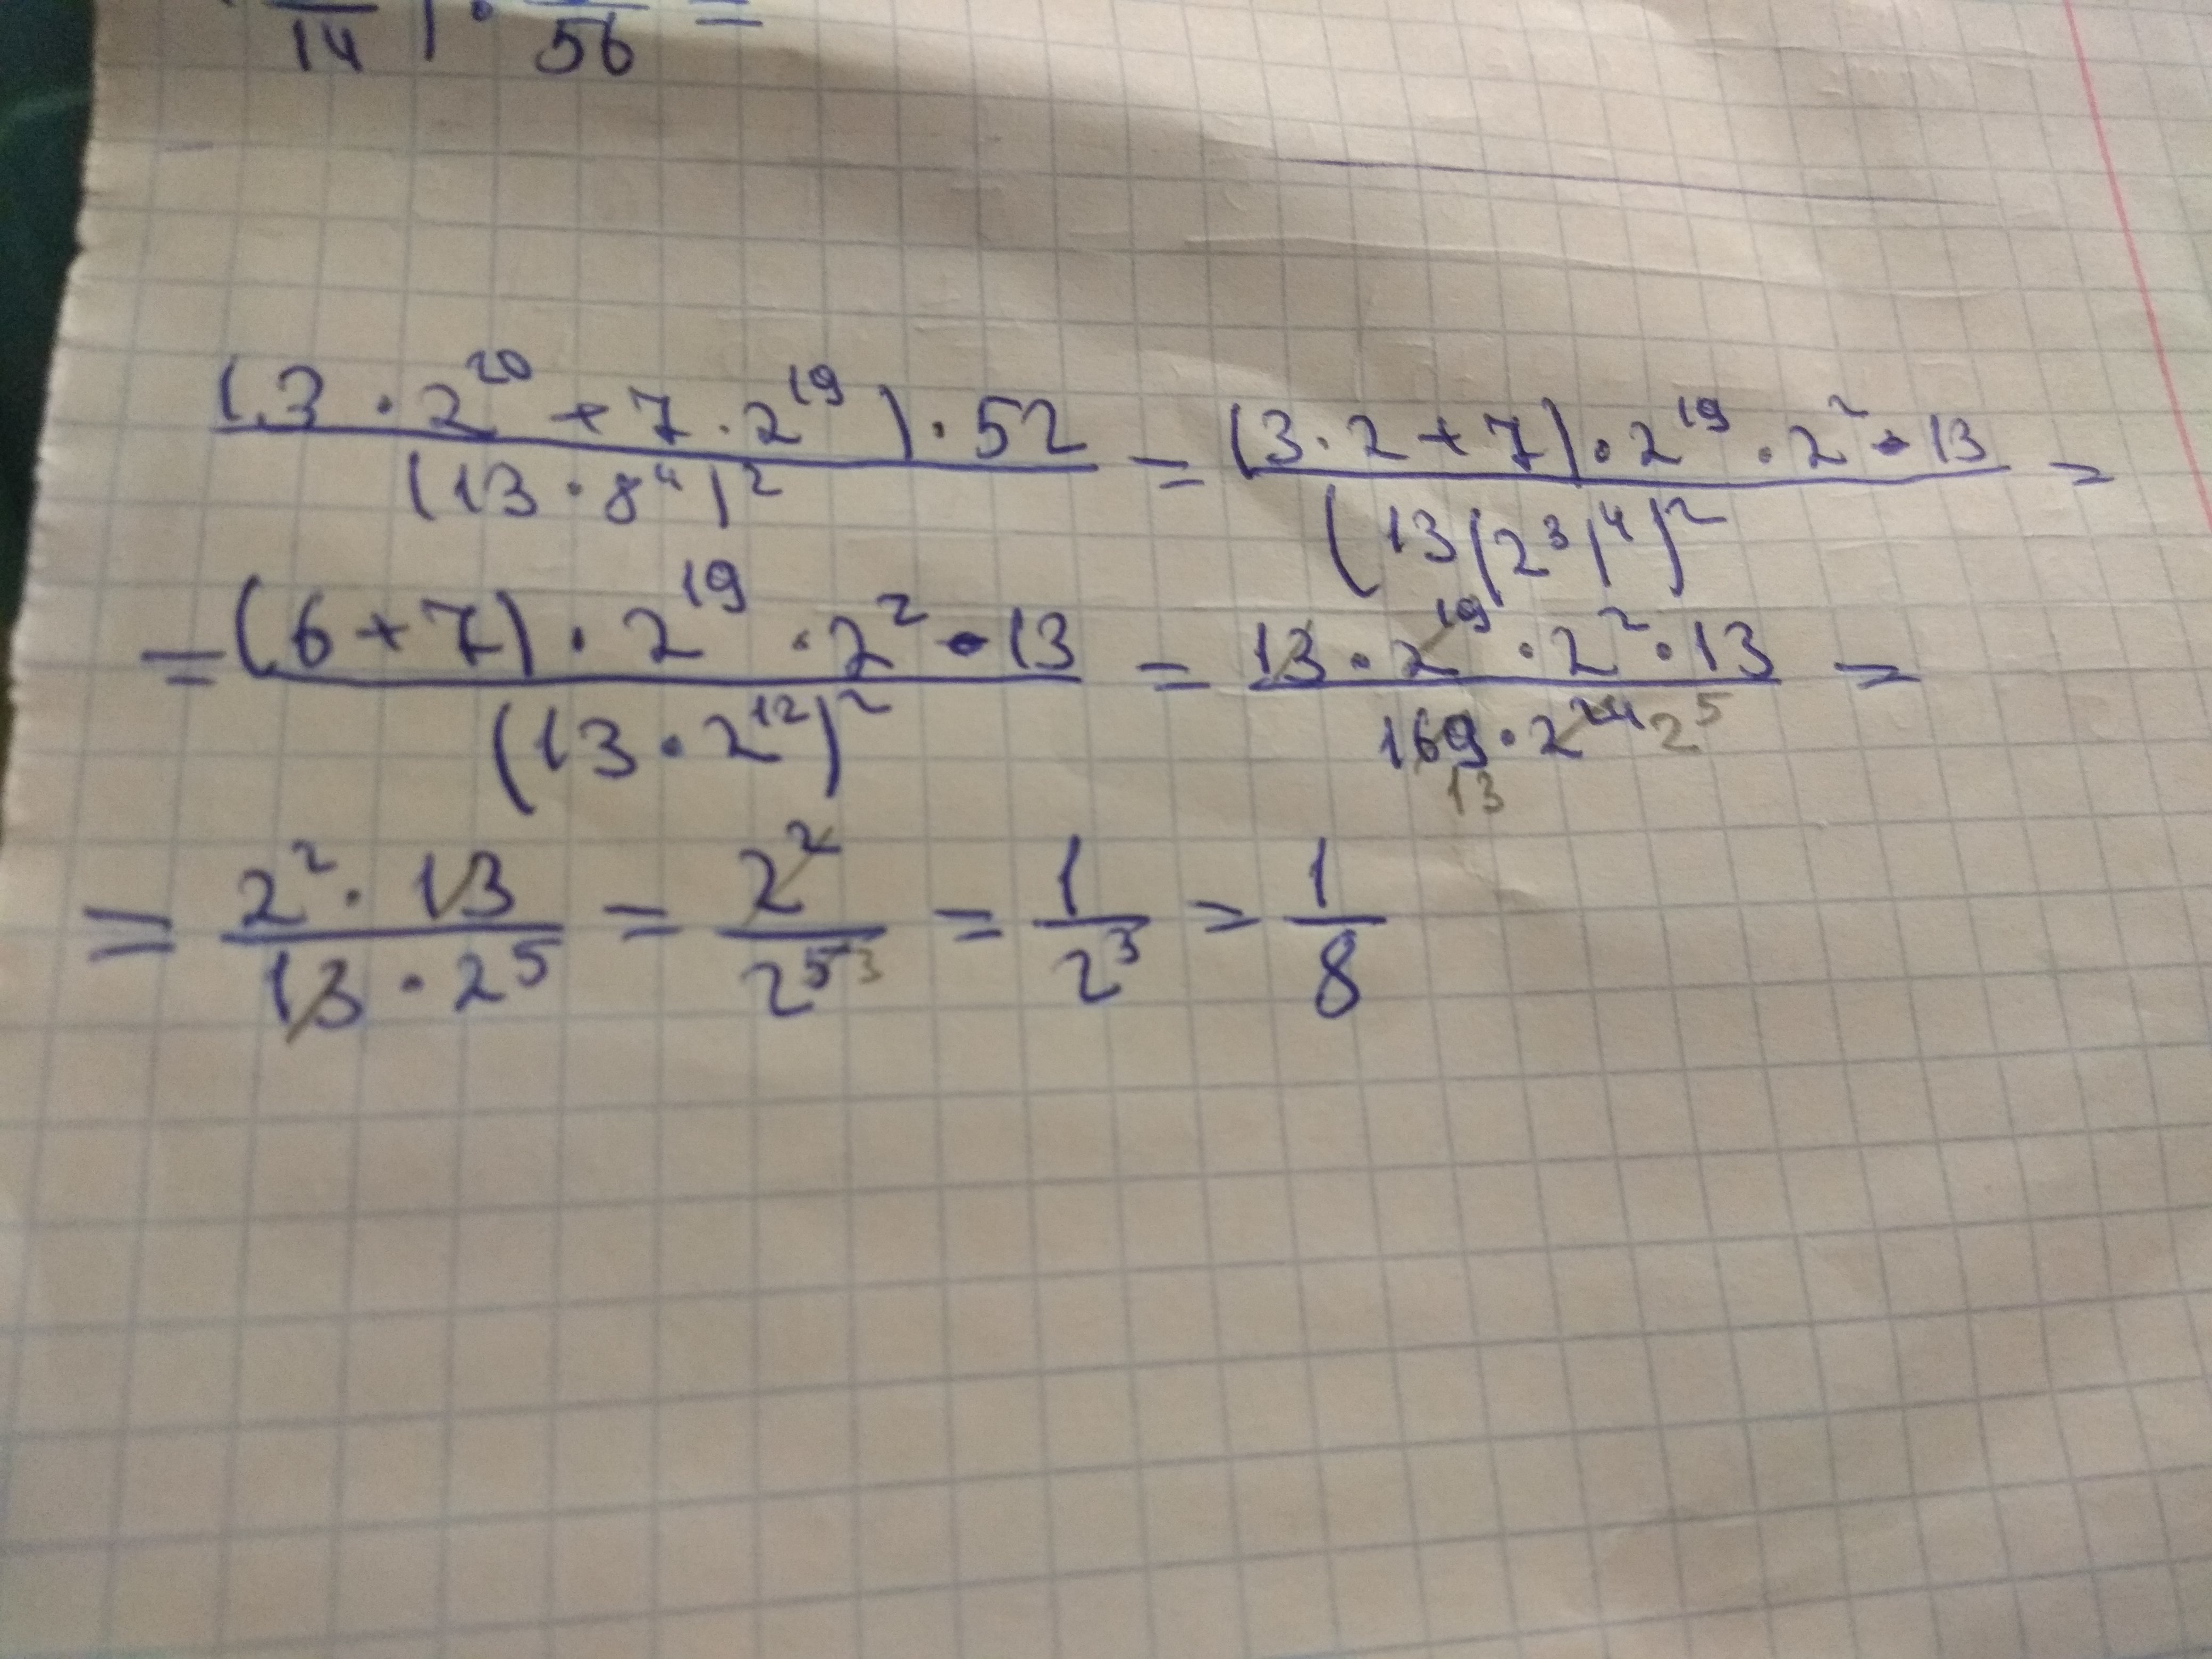 14 ) · 56 =
(3 · 2²⁰ + 7 · 2¹⁹) · 52 / (13 · 8⁴)² = (3 · 2 + 7) · 2¹⁹ · 2² · 13 / (13(2³)⁴)² =
= (6 + 7) · 2¹⁹ · 2² · 13 / (13 · 2¹²)² = 13 · 2¹⁹ · 2² · 13 / 169 · 2²⁴ 2⁵ =
13
= 2² · 13 / 13 · 2⁵ = 2² / 2⁵ 3 = 1 / 2³ = 1 / 8